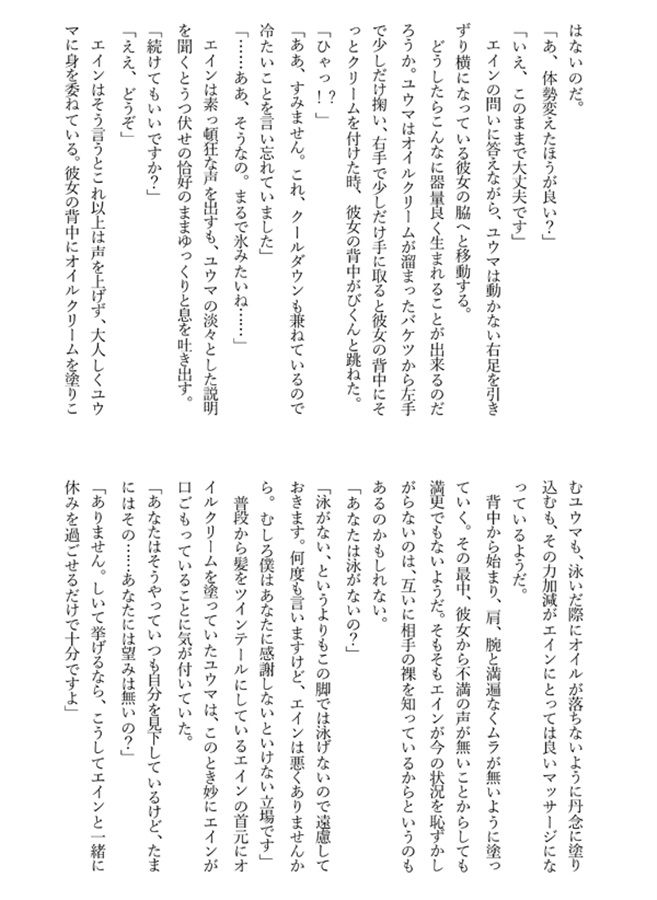 はないのだ。
「あ、体勢変えたほうが良い？」
「いえ、このままで大丈夫です」
　エインの問いに答えながら、ユウマは動かない右足を引き
ずり横になっている彼女の脇へと移動する。
　どうしたらこんなに器量良く生まれることが出来るのだ
ろうか。ユウマはオイルクリームが溜まったバケツから左手
で少しだけ掬い、右手で少しだけ手に取ると彼女の背中にそ
っとクリームを付けた時、彼女の背中がびくんと跳ねた。
「ひゃっ！？」
「ああ、すみません。これ、クールダウンも兼ねているので
冷たいことを言い忘れていました」
「……ああ、そうなの。まるで氷みたいね……」
　エインは素っ頓狂な声を出すも、ユウマの淡々とした説明
を聞くとうつ伏せの恰好のままゆっくりと息を吐き出す。
「続けてもいいですか？」
「ええ、どうぞ」
　エインはそう言うとこれ以上は声を上げず、大人しくユウ
マに身を委ねている。彼女の背中にオイルクリームを塗りこ
むユウマも、泳いだ際にオイルが落ちないように丹念に塗り
込むも、その力加減がエインにとっては良いマッサージにな
っているようだ。
　背中から始まり、肩、腕と満遍なくムラが無いように塗っ
ていく。その最中、彼女から不満の声が無いことからしても
満更でもないようだ。そもそもエインが今の状況を恥ずかし
がらないのは、互いに相手の裸を知っているからというのも
あるのかもしれない。
「あなたは泳がないの？」
「泳がない、というよりもこの脚では泳げないので遠慮して
おきます。何度も言いますけど、エインは悪くありませんか
ら。むしろ僕はあなたに感謝しないといけない立場です」
　普段から髪をツインテールにしているエインの首元にオ
イルクリームを塗っていたユウマは、このとき妙にエインが
口ごもっていることに気が付いていた。
「あなたはそうやっていつも自分を見下しているけど、たま
にはその……あなたには望みは無いの？」
「ありません。しいて挙げるなら、こうしてエインと一緒に
休みを過ごせるだけで十分ですよ」